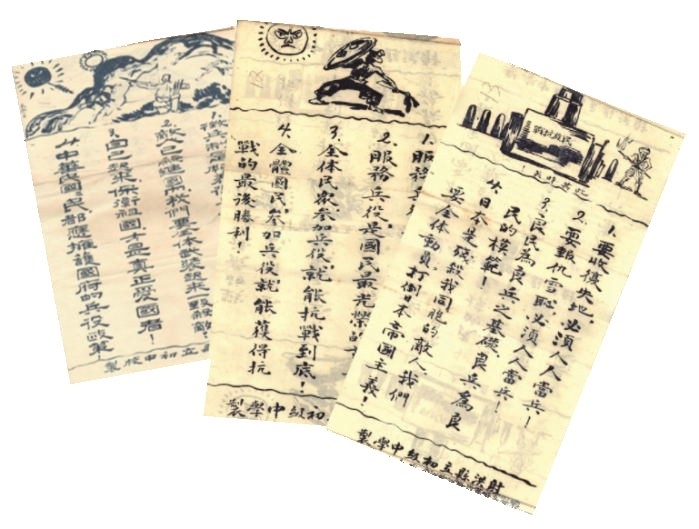 2、敵人已經
我們要全体武裝起來一致殺敵!
3、自己整裝保衛祖國才是真正愛國者!
4、中華民國國民都應擁護國府的兵役政策!
立初中校製
1、服務兵
2、服務兵役是國民最光榮的
3、全体民眾參加兵役就能抗戰到底!
4、全體國民參加兵役就能獲得抗
戰的最後勝利!
初級中學製
民族抗戰
1、要收復失地、必須人人當兵!
2、要報仇雪恥必須人人當兵!
3、良民為良兵之基礎、良兵為良
民的模範!
4、日本是殘殺我同胞的敵人、我們
要全体動員、打倒日本帝國主義!
射洪縣立初級中學製